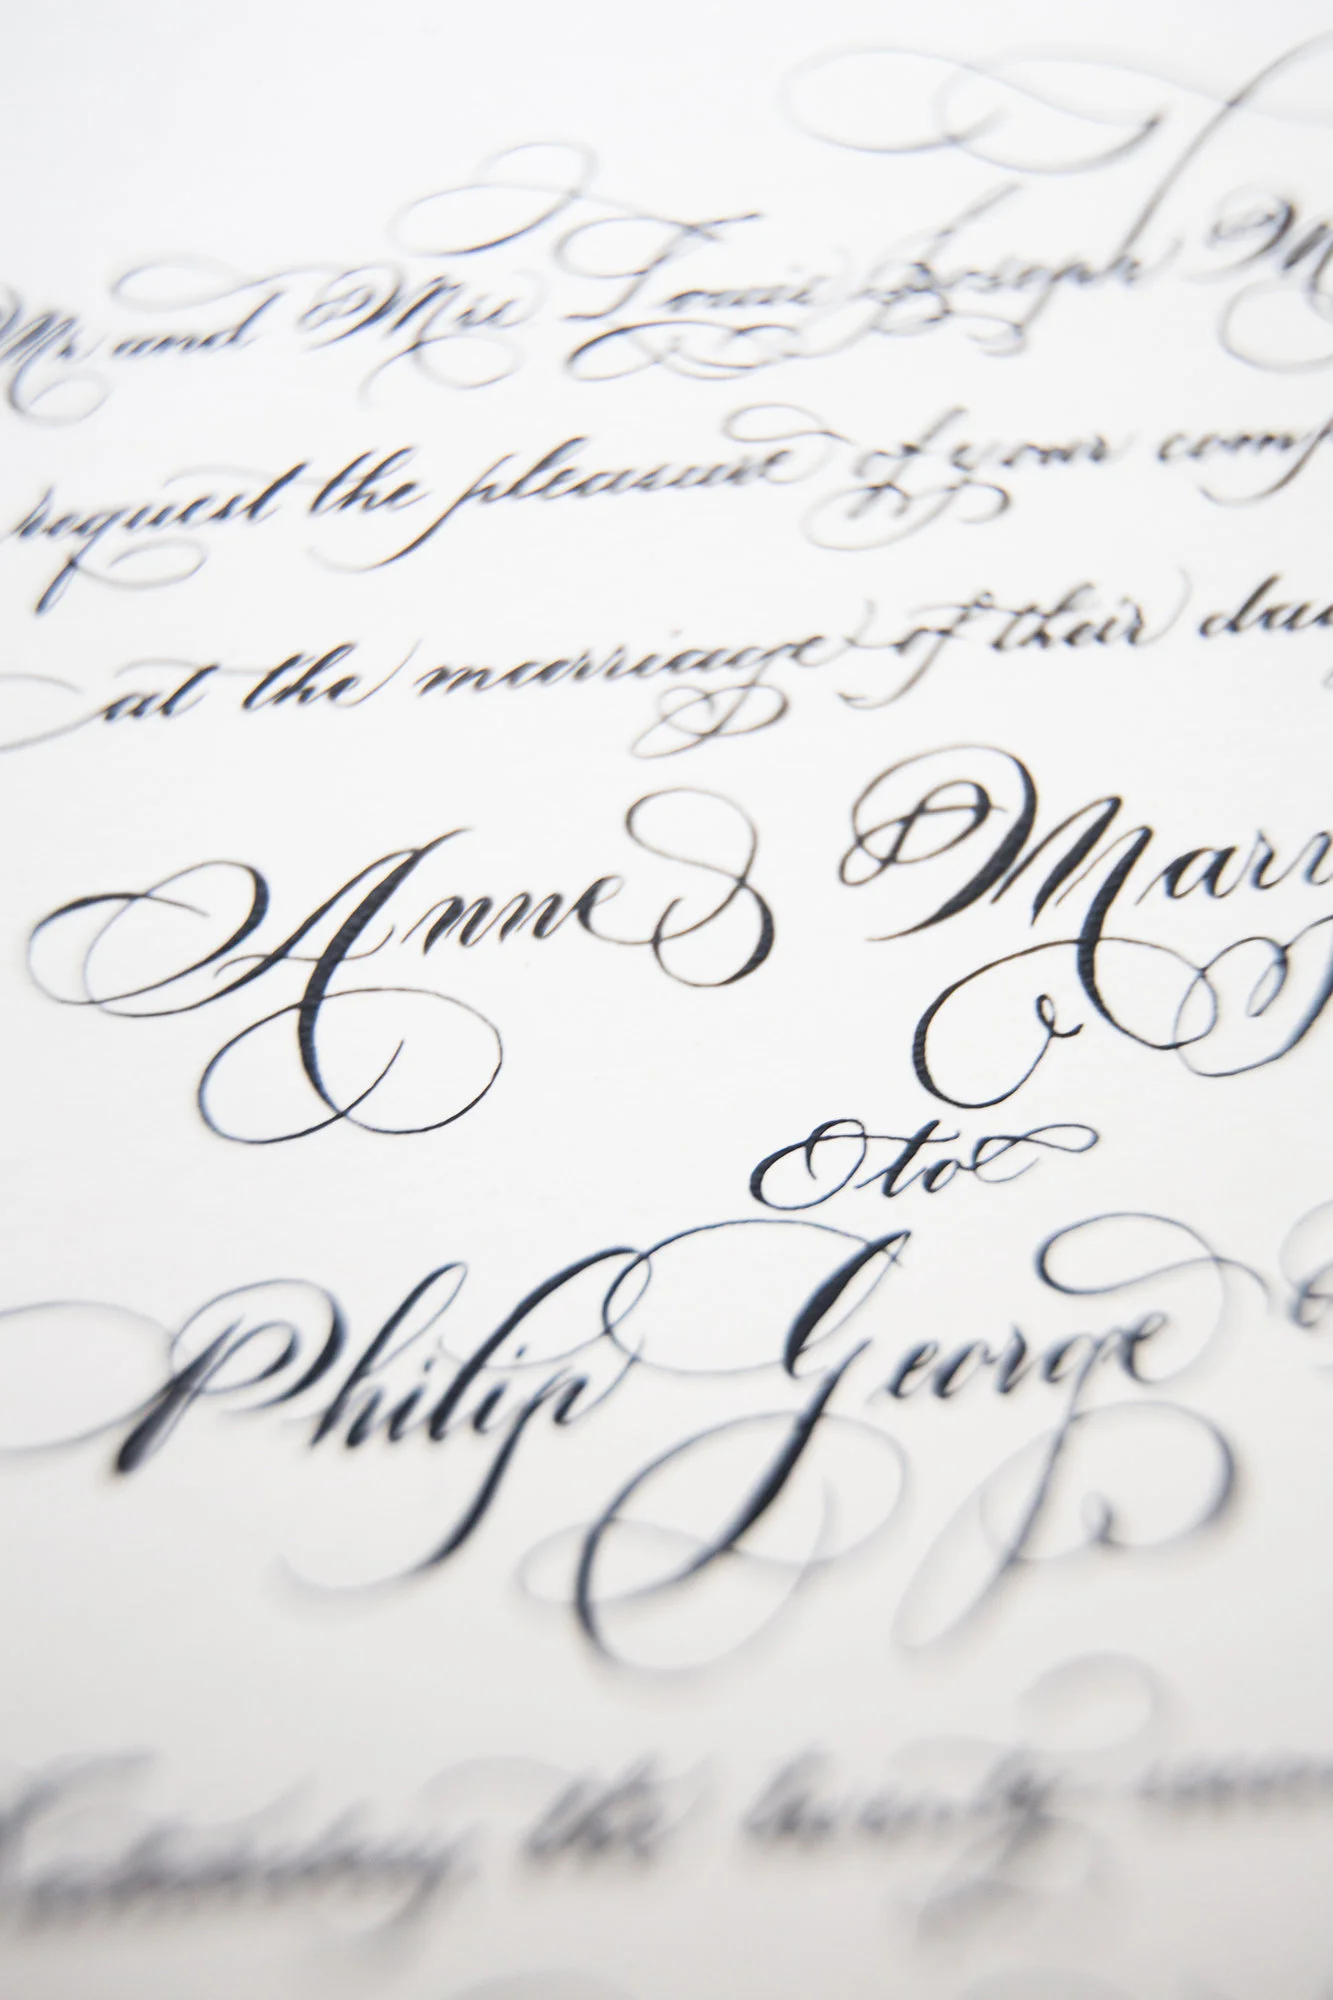 Mr. and Mrs. Louis Joseph M
request the pleasure of your comp
at the marriage of their dau
Anne Mary
to
Philip George
Saturday the twenty